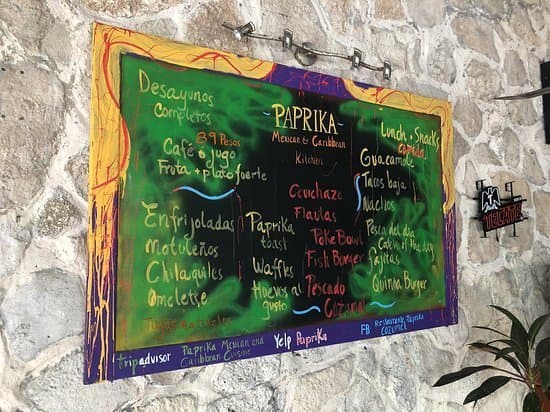 Desayunos
completos
39 Pesos
Café ó jugo
Fruta + plato fuerte
Enfrijoladas
Motuleños
Chilaquiles
Omeletse
PAPRIKA
Mexican & Caribbean
Kitchen
Paprika
toast
Waffles
Huevos al
gusto
Cevichazo
Flautas
Poke Bowl
Fish Burger
Pescado
Cozumel
Lunch + Snacks
comida
Guacamole
Tacos baja
Nachos
Pesca del dia
Catch of the day
Fajitas
Quinoa Burger
tripadvisor
Paprika Mexican and
Caribbean Cuisine
Yelp Paprika
FB Restaurante Paprika
Cozumel
WELCOME